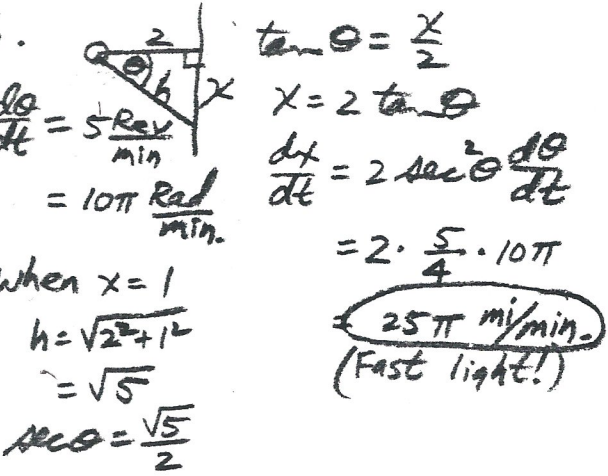 .
2
θ
h
x
dθ/dt = 5 Rev/min
= 10π Rad/min.
when x = 1
h = √(2²+1²)
= √5
sec θ = √5/2
tan θ = x/2
x = 2 tan θ
dx/dt = 2 sec²θ dθ/dt
= 2 · 5/4 · 10π
= 25π mi/min.
(Fast light!)